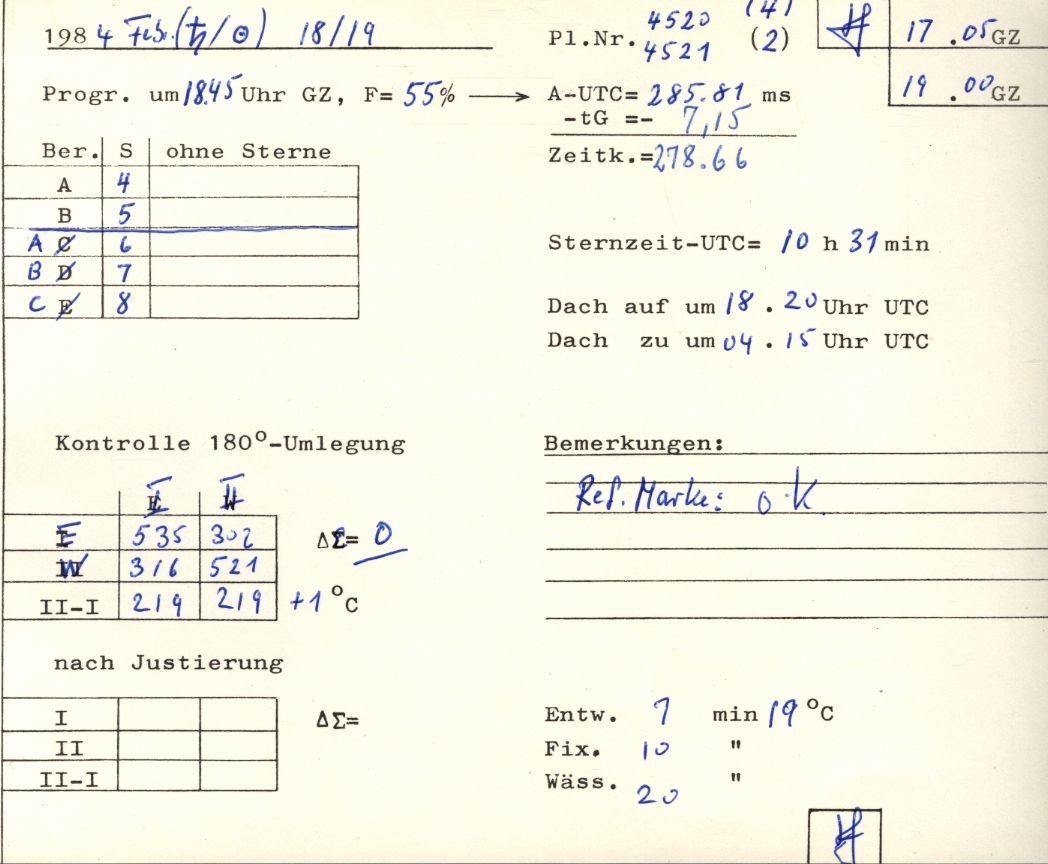 1984 Feb. (♄/☉) 18/19
Pl.Nr. 4520 (4)
4521 (2)
17.05 GZ
19.00 GZ
Progr. um 18.45 Uhr GZ, F= 55% → A-UTC= 285.81 ms
-tG =- 7,15
Zeitk.= 278.66
Ber. S ohne Sterne
A 4
B 5
A C 6
B D 7
C E 8
Sternzeit-UTC= 10 h 31 min
Dach auf um 18.20 Uhr UTC
Dach zu um 04.15 Uhr UTC
Kontrolle 180°-Umlegung
I II
E 535 302 ΔΣ= 0
W 316 521
II-I 219 219 +1 °C
Bemerkungen:
Ref. Marke: o.K.
nach Justierung
I ΔΣ=
II
II-I
Entw. 7 min 19 °C
Fix. 10 "
Wäss. 20 "